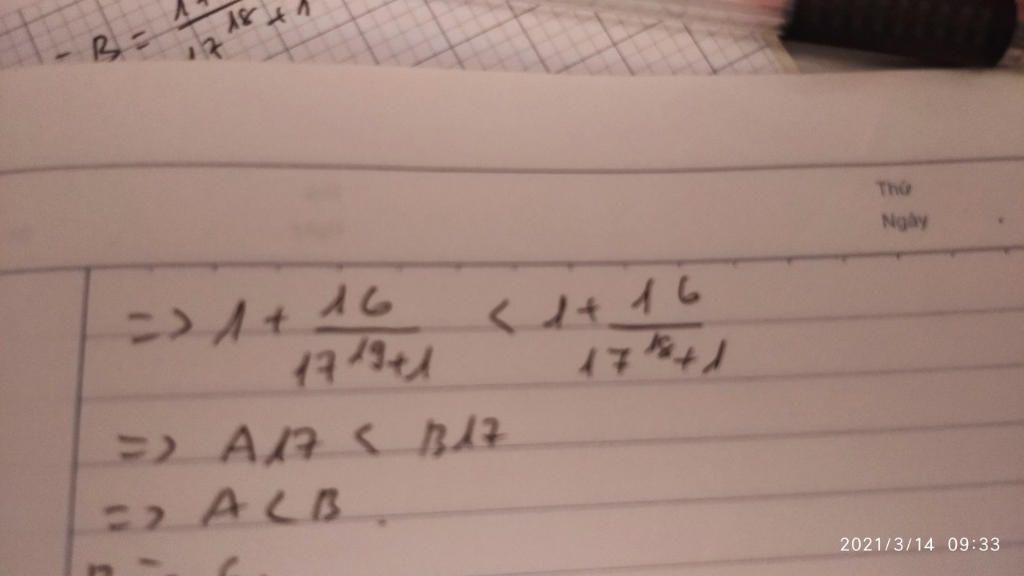 - B = 17^18 + 1
Thứ
Ngày
=> 1 + 16/(17^19+1) < 1 + 16/(17^18+1)
=> A17 < B17
=> A < B.
2021/3/14 09:33